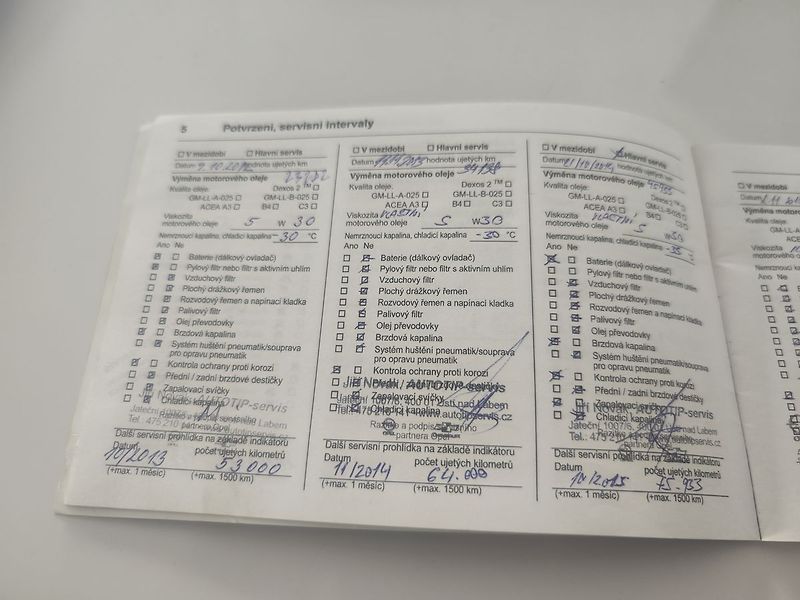 5 Potvrzení, servisní intervaly
V mezidobí Hlavní servis
Datum 9.10.2012 hodnota ujetých km
Výměna motorového oleje
Kvalita oleje: Dexos 2 ™
GM-LL-A-025 GM-LL-B-025
ACEA A3 B4 C3
Viskozita
motorového oleje 5 W 30
Nemrznoucí kapalina, chladicí kapalina -30 °C
Ano Ne
Baterie (dálkový ovladač)
Pylový filtr nebo filtr s aktivním uhlím
Vzduchový filtr
Plochý drážkový řemen
Rozvodový řemen a napínací kladka
Palivový filtr
Olej převodovky
Brzdová kapalina
Systém huštění pneumatik/souprava
pro opravu pneumatik
Kontrola ochrany proti korozi
Přední / zadní brzdové destičky
Zapalovací svíčky
Chladicí kapalina
Jiří Novák / AUTOTIP-servis
Další servisní prohlídka na základě indikátoru
Datum počet ujetých kilometrů
10/2013 53000
(+max. 1 měsíc) (+max. 1500 km)
V mezidobí Hlavní servis
Datum hodnota ujetých km
Výměna motorového oleje
Kvalita oleje: Dexos 2 ™
GM-LL-A-025 GM-LL-B-025
ACEA A3 B4 C3
Viskozita VLASTNÍ
motorového oleje 5 W 30
Nemrznoucí kapalina, chladicí kapalina -30 °C
Ano Ne
Baterie (dálkový ovladač)
Pylový filtr nebo filtr s aktivním uhlím
Vzduchový filtr
Plochý drážkový řemen
Rozvodový řemen a napínací kladka
Palivový filtr
Olej převodovky
Brzdová kapalina
Systém huštění pneumatik/souprava
pro opravu pneumatik
Kontrola ochrany proti korozi
Jiří Novák / AUTOTIP-servis
Zapalovací svíčky
Jateční 1007/8, 400 01 Ústí nad Labem
Chladicí kapalina
www.autotipservis.cz
Razítko a podpis servisního
partnera Opel
Další servisní prohlídka na základě indikátoru
Datum počet ujetých kilometrů
11/2014 64.000
(+max. 1 měsíc) (+max. 1500 km)
V mezidobí Hlavní servis
Datum hodnota ujetých km
Výměna motorového oleje
Kvalita oleje: Dexos 2 ™
GM-LL-A-025 GM-LL-B-025
ACEA A3 B4 C3
Viskozita VLASTNÍ
motorového oleje 5 W 30
Nemrznoucí kapalina, chladicí kapalina -35 °C
Ano Ne
Baterie (dálkový ovladač)
Pylový filtr nebo filtr s aktivním uhlím
Vzduchový filtr
Plochý drážkový řemen
Rozvodový řemen a napínací kladka
Palivový filtr
Olej převodovky
Brzdová kapalina
Systém huštění pneumatik/souprava
pro opravu pneumatik
Kontrola ochrany proti korozi
Přední / zadní brzdové destičky
Zapalovací svíčky
Jiří Novák / AUTOTIP-servis
Další servisní prohlídka na základě indikátoru
Datum počet ujetých kilometrů
10/2015 75.933
(+max. 1 měsíc) (+max. 1500 km)
V mezidobí
Datum
Výměna motorového
Kvalita oleje:
GM-LL-A
ACE
Viskozita
motorového oleje
Nemrznoucí kapalin
Ano Ne